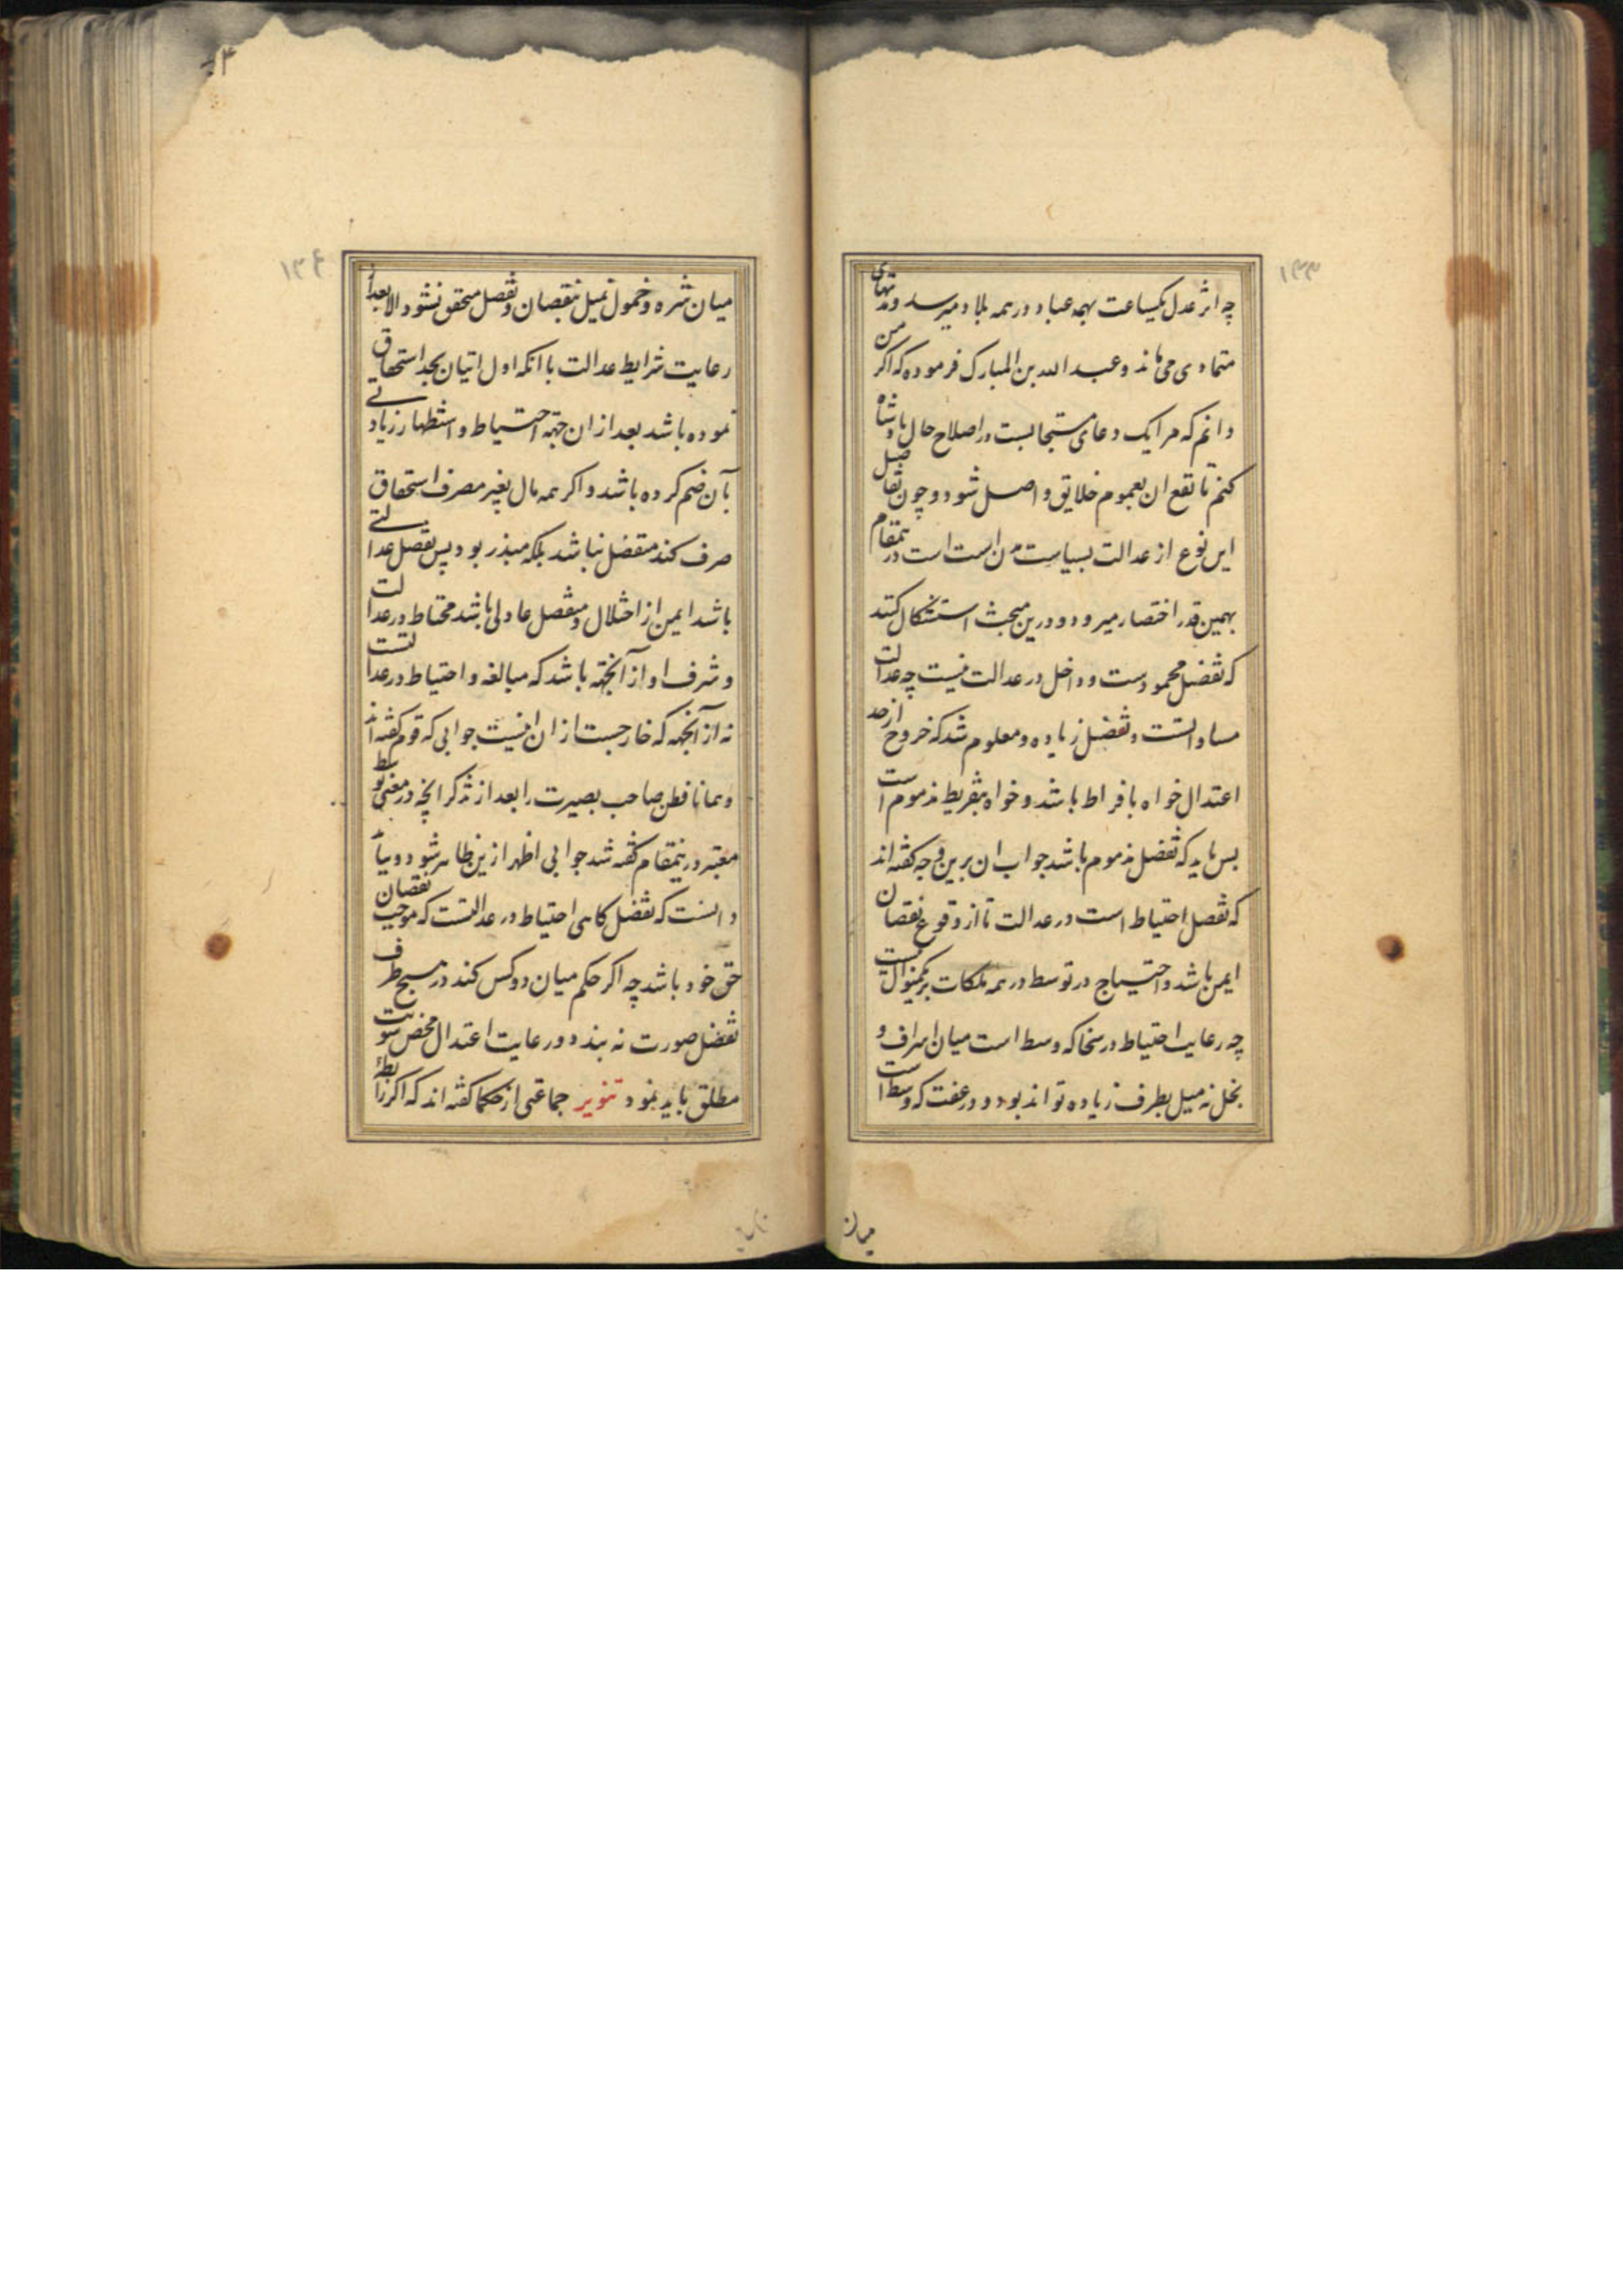 ۱۳۳
چه اثر عدل یکساعت بهمه عباد و در همه بلاد میرسد و مدتهای
متمادی می ماند و عبد الله بن المبارک فرموده که اکر من
دانم که مرا یک دعای مستجابست در اصلاح حال پادشاه
کنم تا نفع ان بعموم خلایق واصل شود و چون تفاصیل
این نوع از عدالت بسیاست مدن انسب است در ینمقام
بهمین قدر اختصار میرود و درین مبحث استشکال کنند
که تفضل محمودست و داخل در عدالت نیست چه عدالت
مساواتست و تفضل زیاده و معلوم شد که خروج از حد
اعتدال خواه بافراط باشد و خواه بتفریط مذموم است
پس باید که تفضل مذموم باشد جواب ان برین وجه کفته اند
که تفضل احتیاط است در عدالت تا از وقوع نقصان
ایمن باشد و احتیاج در توسط در همه ملکات بریکمنوال نیست
چه رعایت احتیاط در سخا که وسط است میان اسراف و
بخل نه میل بطرف زیاده تواند بود و در عفت که وسط است
میان
۱۳۴
میان شره و خمول تمیل بنقصان و تفضل متحقق نشود الا بعد از
رعایت شرایط عدالت با انکه اول اتیان بحد استحقاق
نموده باشد بعد از ان جهة احتیاط و استظهار زیادتی
بآن ضم کرده باشد و اکر همه مال بغیر مصرف استحقاق
صرف کند متفضل نباشد بلکه مبذر بود پس تفضل عدالتی
باشد ایمن از اختلال و متفضل عادلی باشد محتاط در عدالت
و شرف او از آنجهة باشد که مبالغه و احتیاط در عدالتست
نه از آنجهة که خارجست از ان اینست جوابی که قوم کفته اند
و همانا فطن صاحب بصیرت را بعد از تذکر انچه در معنی توسط
معتبر در ینمقام کفته شد جوابی اظهر ازین ظاهر شود و بباید
دانست که تفضل کاهی احتیاط در عدالتست که موجب نقصان
حق خود باشد چه اکر حکم میان دو کس کند در هیچ طرف
تفضل صورت نه بندد و رعایت اعتدال محض و تسویت
مطلق باید نمود تنویر جماعتی از حکما کفته اند که اکر رابطهٔ